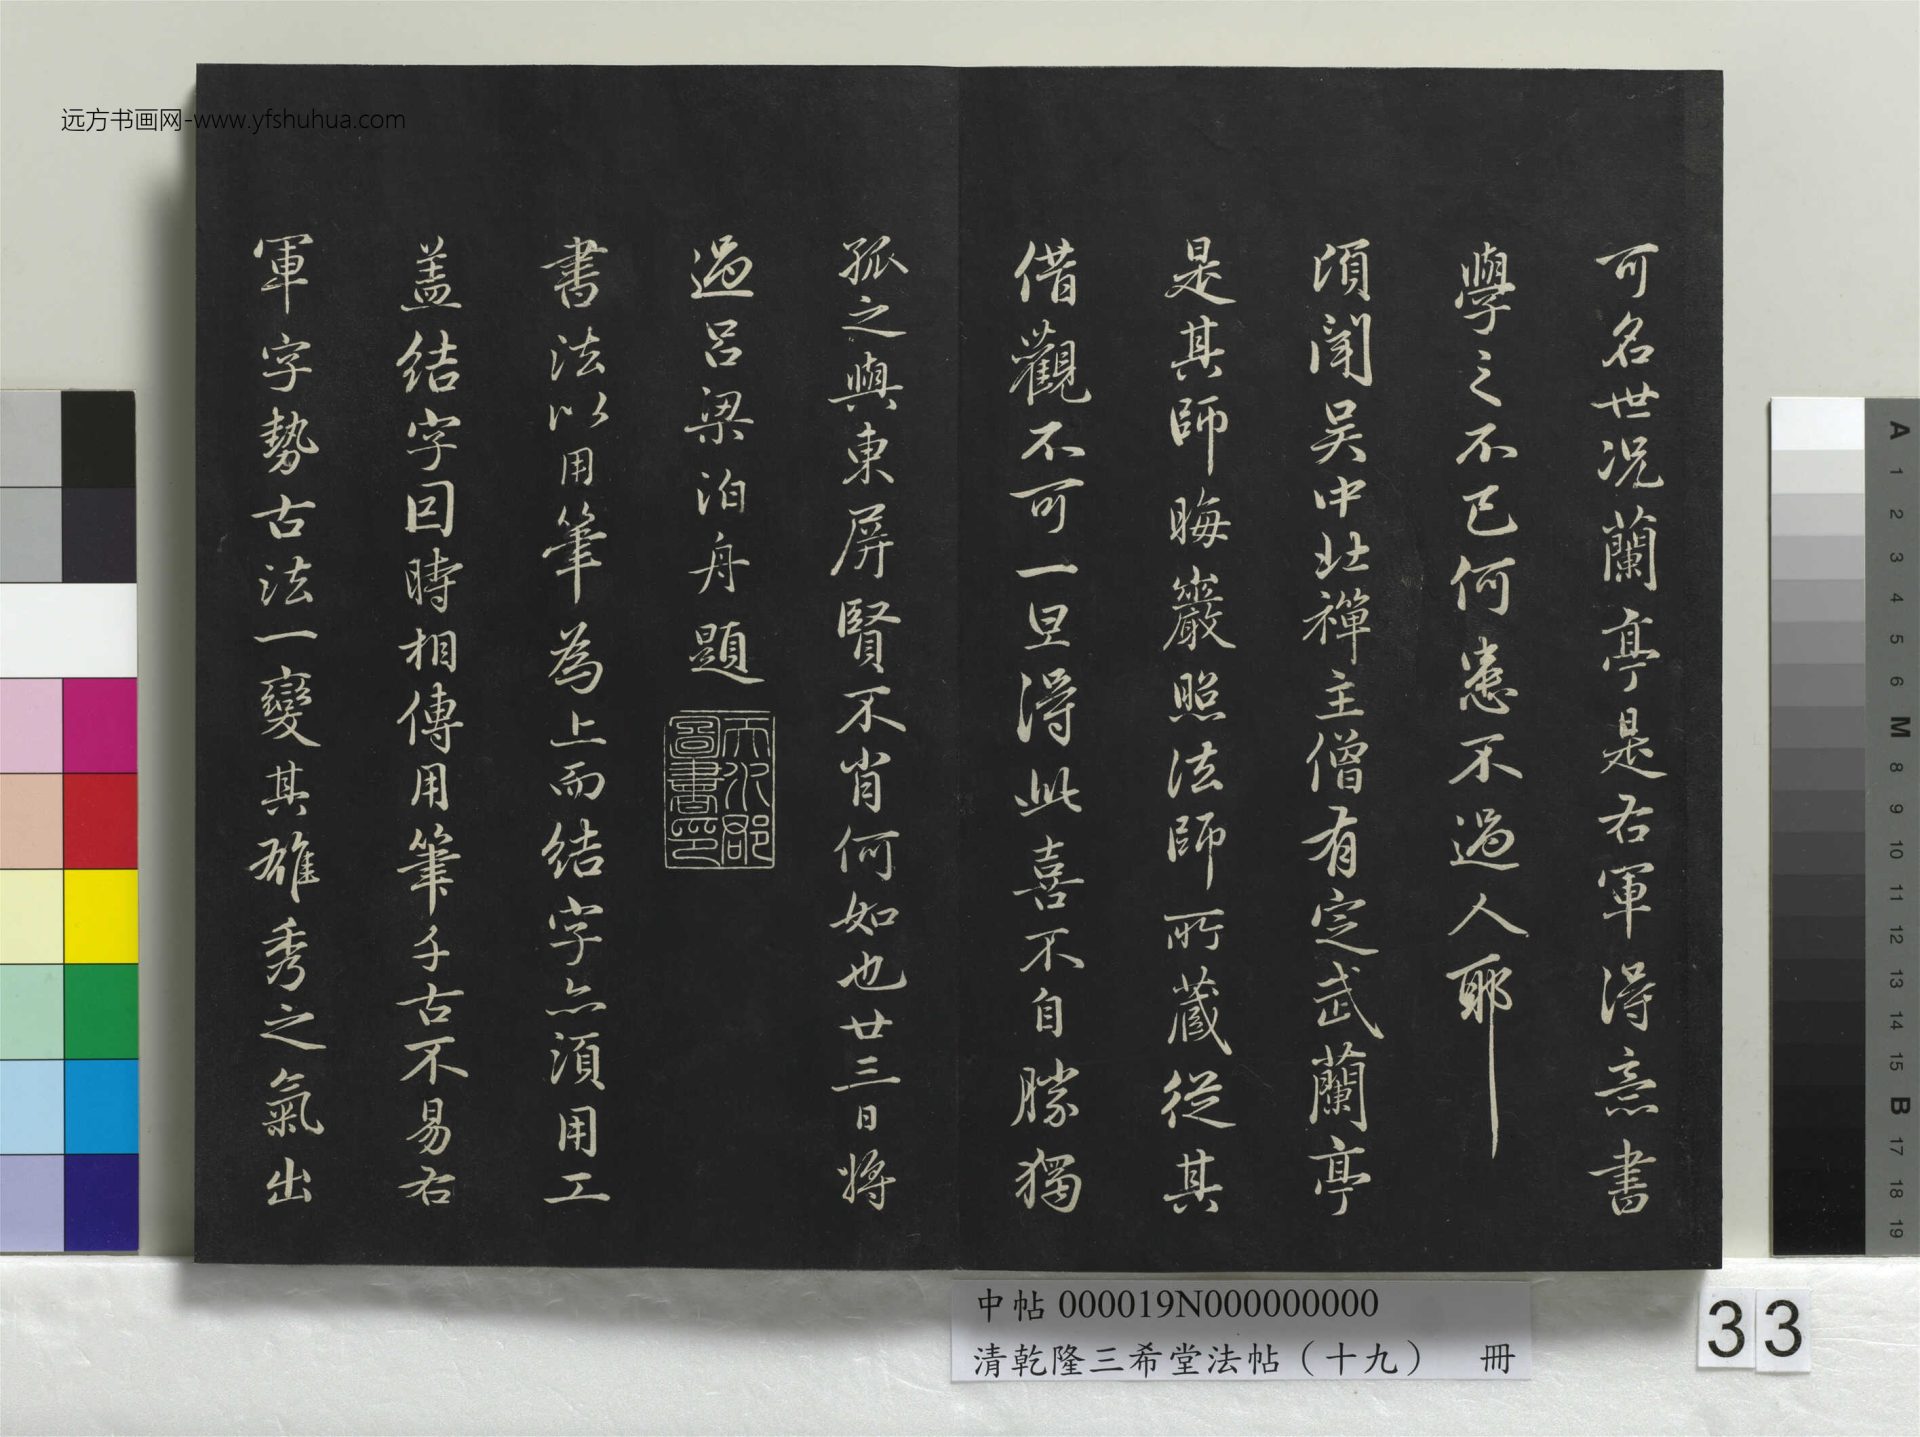 可名世况蘭亭是右軍得意書
學之不已何患不過人耶
頃聞吴中北禪主僧有定武蘭亭
是其師晦巖照法師所藏從其
借觀不可一旦得此喜不自勝獨
孤之與東屏賢不肖何如也廿三日將
過呂梁泊舟題
天水郡圖書印
書法以用筆為上而結字亦須用工
盖結字因時相傳用筆千古不易右
軍字勢古法一變其雄秀之氣出
远方书画网-www.yfshuhua.com
中帖 000019N000000000
清乾隆三希堂法帖（十九） 冊
33
A 1 2 3 4 5 6 M 8 9 10 11 12 13 14 15 B 17 18 19